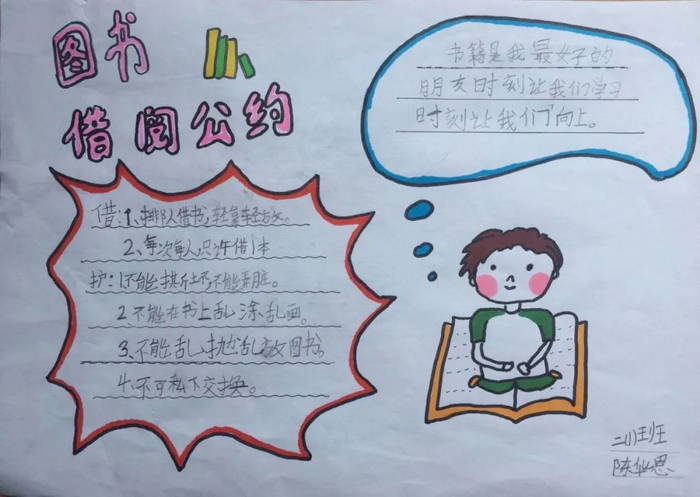 图书
借阅公约
书籍是我最好的
朋友时刻让我们学习
时刻让我们向上。
借:1、排队借书,轻拿轻放。
2、每次每人只许借1本
护:1不能损坏不能弄脏。
2不能在书上乱涂乱画。
3、不能乱抛乱放图书,
4、不可私下交换。
二(1)班
陈 思